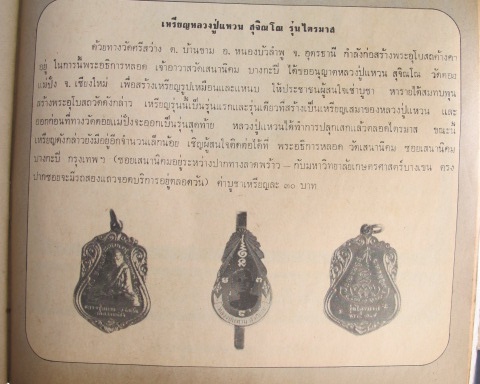 เหรียญหลวงปู่แหวน สุจิณโณ รุ่นไตรมาส
ด้วยทางวัดศรีสว่าง ต. บ้านขาม อ. หนองบัวลำพู จ. อุดรธานี กำลังก่อสร้างพระอุโบสถค้างคา
อยู่ ในการนี้พระอธิการหลอด เจ้าอาวาสวัดเสนานิคม บางกะบี ได้ขออนุญาตหลวงปู่แหวน สุจิณโณ วัดดอย
แม่ปั๋ง จ. เชียงใหม่ เพื่อสร้างเหรียญรูปเหมือนและแหนบ ให้ประชาชนผู้สนใจเช่าบูชา หารายได้สมทบทุน
สร้างพระอุโบสถวัดดังกล่าว เหรียญรุ่นนี้เป็นรุ่นแรกและรุ่นเดียวที่สร้างเป็นเหรียญเสมาของหลวงปู่แหวน และ
ออกก่อนที่ทางวัดดอยแม่ปั๋งจะออกเป็นรุ่นสุดท้าย หลวงปู่แหวนได้ทำการปลุกเสกแล้วตลอดไตรมาส ขณะนี้
เหรียญดังกล่าวยังมีอยู่อีกจำนวนเล็กน้อย เชิญผู้สนใจติดต่อได้ที่ พระอธิการหลอด วัดเสนานิคม ซอยเสนานิคม
บางกะบี กรุงเทพฯ (ซอยเสนานิคมอยู่ระหว่างปากทางลาดพร้าว – กับมหาวิทยาลัยเกษตรศาสตร์บางเขน ตรง
ปากซอยจะมีรถสองแถวจอดบริการอยู่ตลอดวัน) ค่าบูชาเหรียญละ ๓๐ บาท